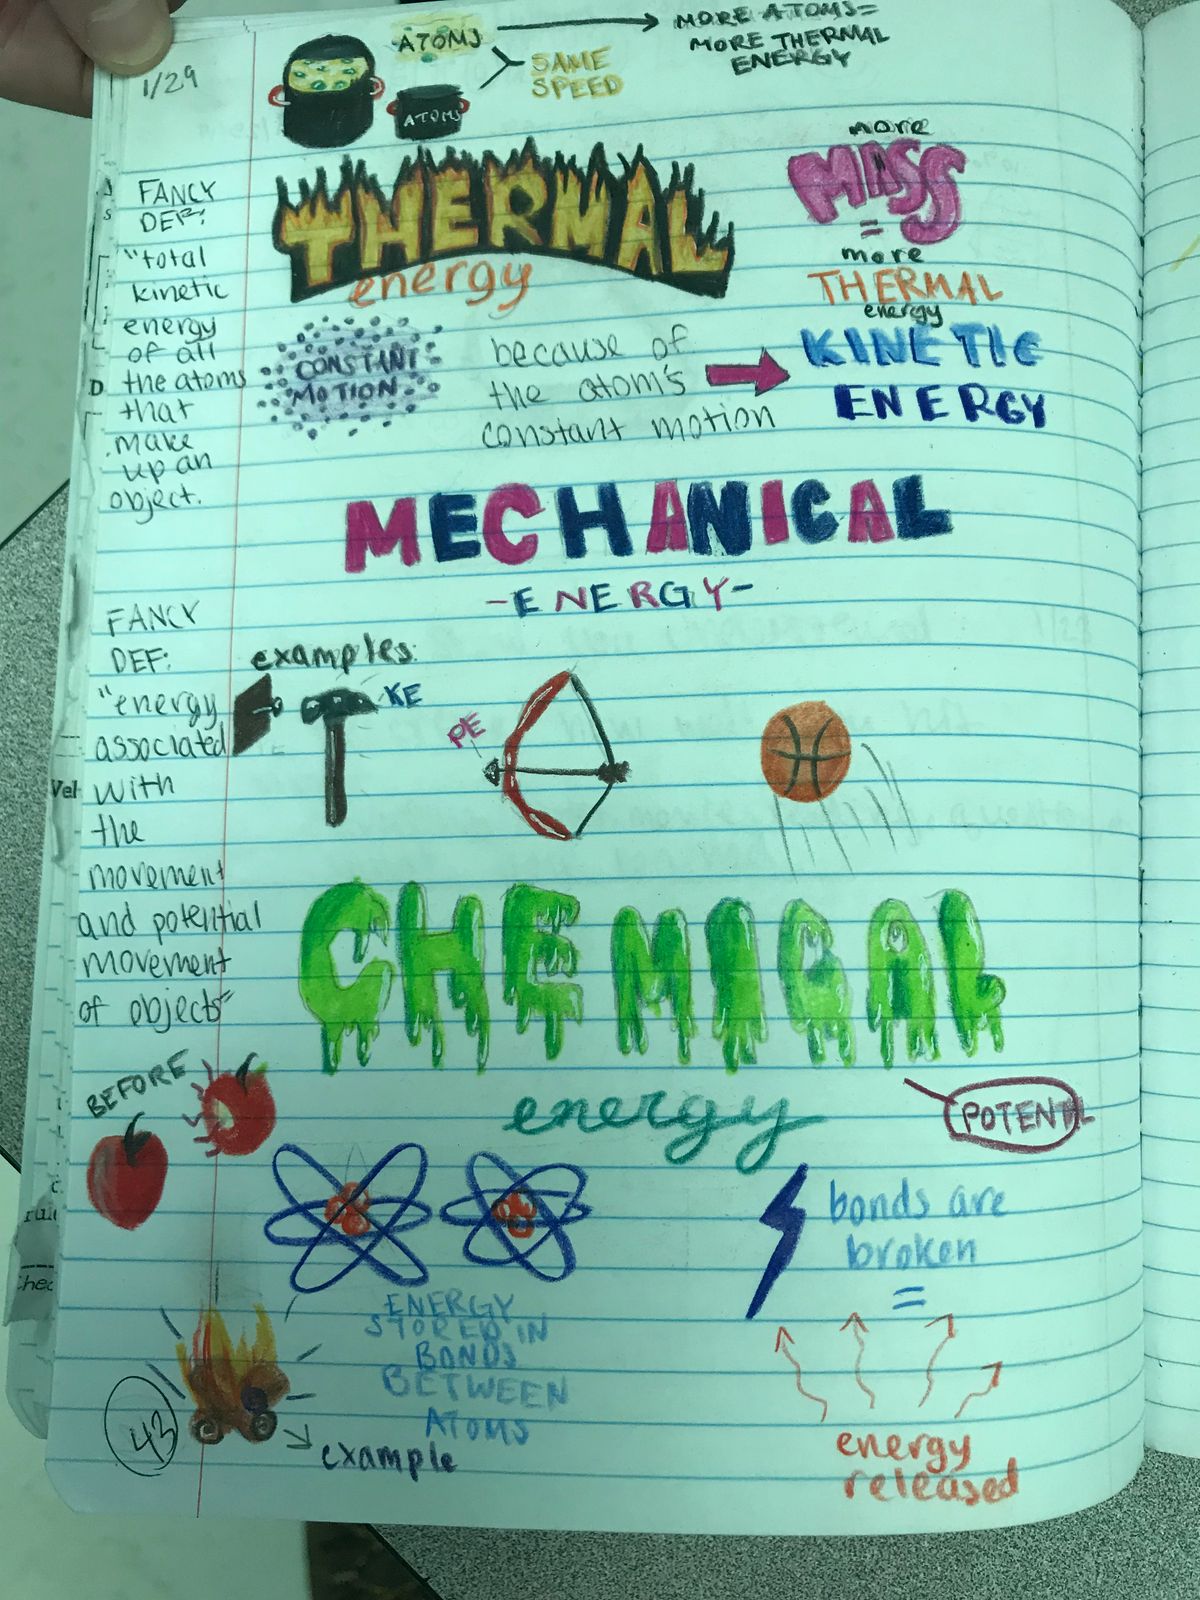 1/29
ATOMS
MORE ATOMS=
MORE THERMAL
ENERGY
SAME
SPEED
ATOMS
THERMAL
energy
more
MASS
=
more
THERMAL
energy
FANCY
DEF:
"total
kinetic
energy
of all
the atoms
that
make
up an
object.
CONSTANT
MOTION
because of
the atom's
constant motion
KINETIC
ENERGY
MECHANICAL
-ENERGY-
FANCY
DEF:
"energy
associated
with
the
movement
and potential
movement
of objects"
examples:
KE
PE
CHEMICAL
energy
POTENTL
BEFORE
ENERGY
STORED IN
BONDS
BETWEEN
ATOMS
bonds are
broken
=
energy
released
example
43
Vel
D